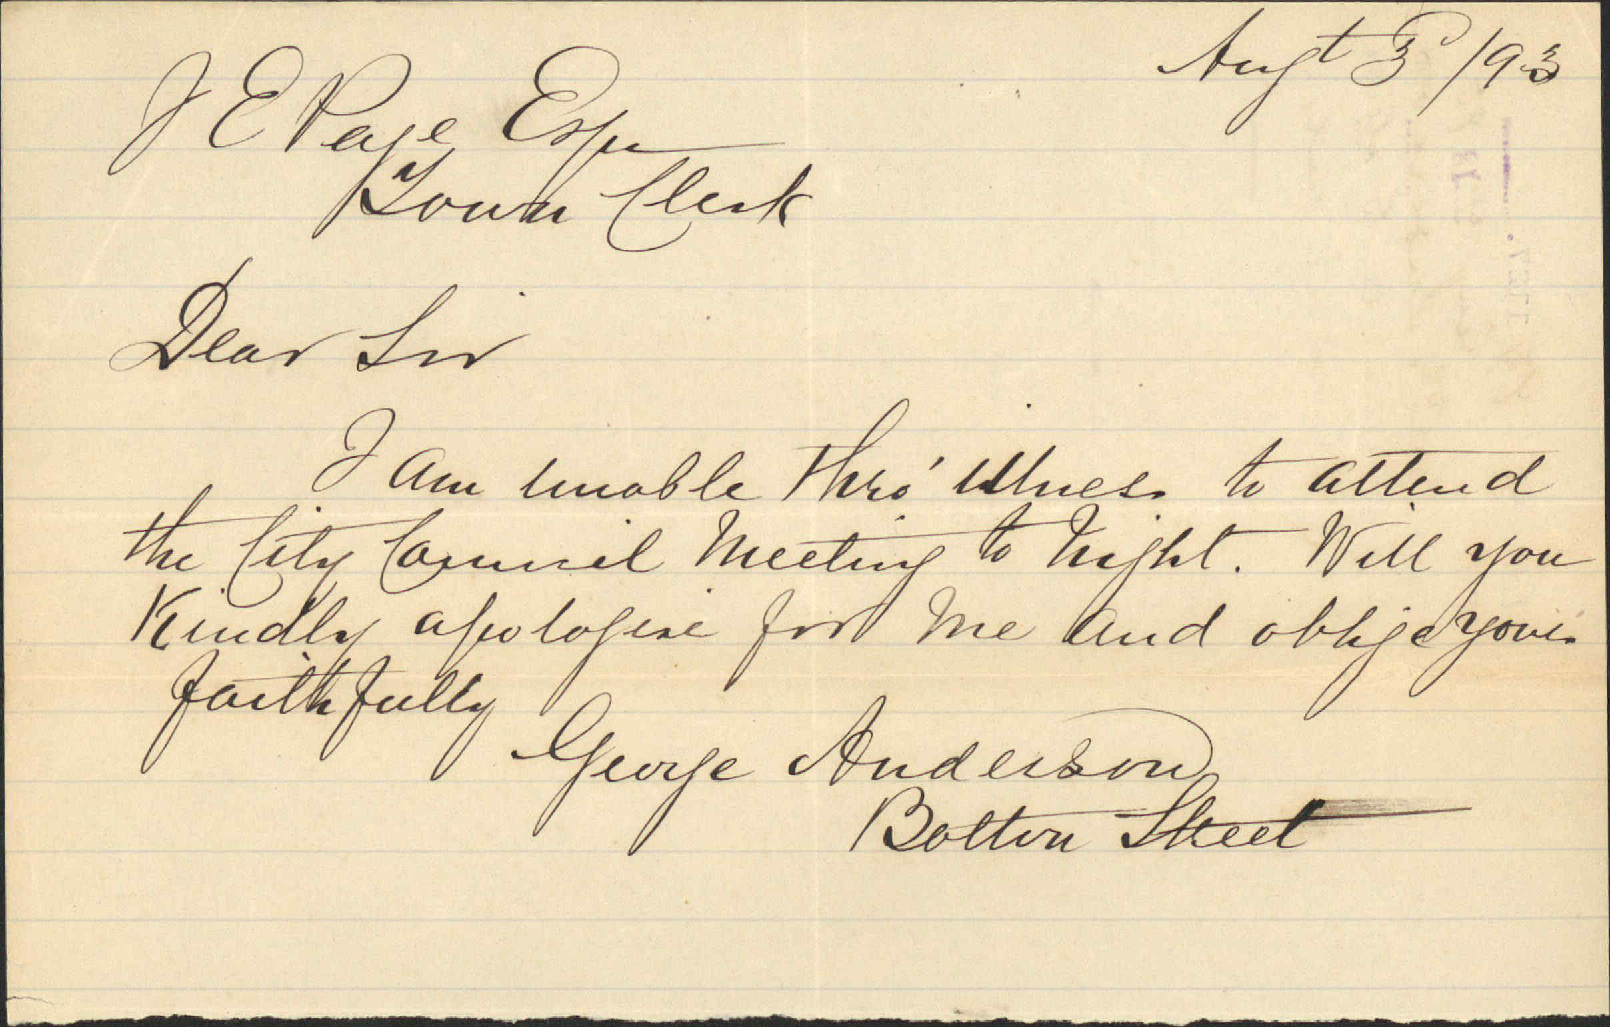 Augt 3d /93
J E Page Esqr
Town Clerk
Dear Sir
I am unable thro' illness to attend
the City Council Meeting to Night. Will you
Kindly apologise for me and oblige yours
faithfully
George Anderson
Bolton Street